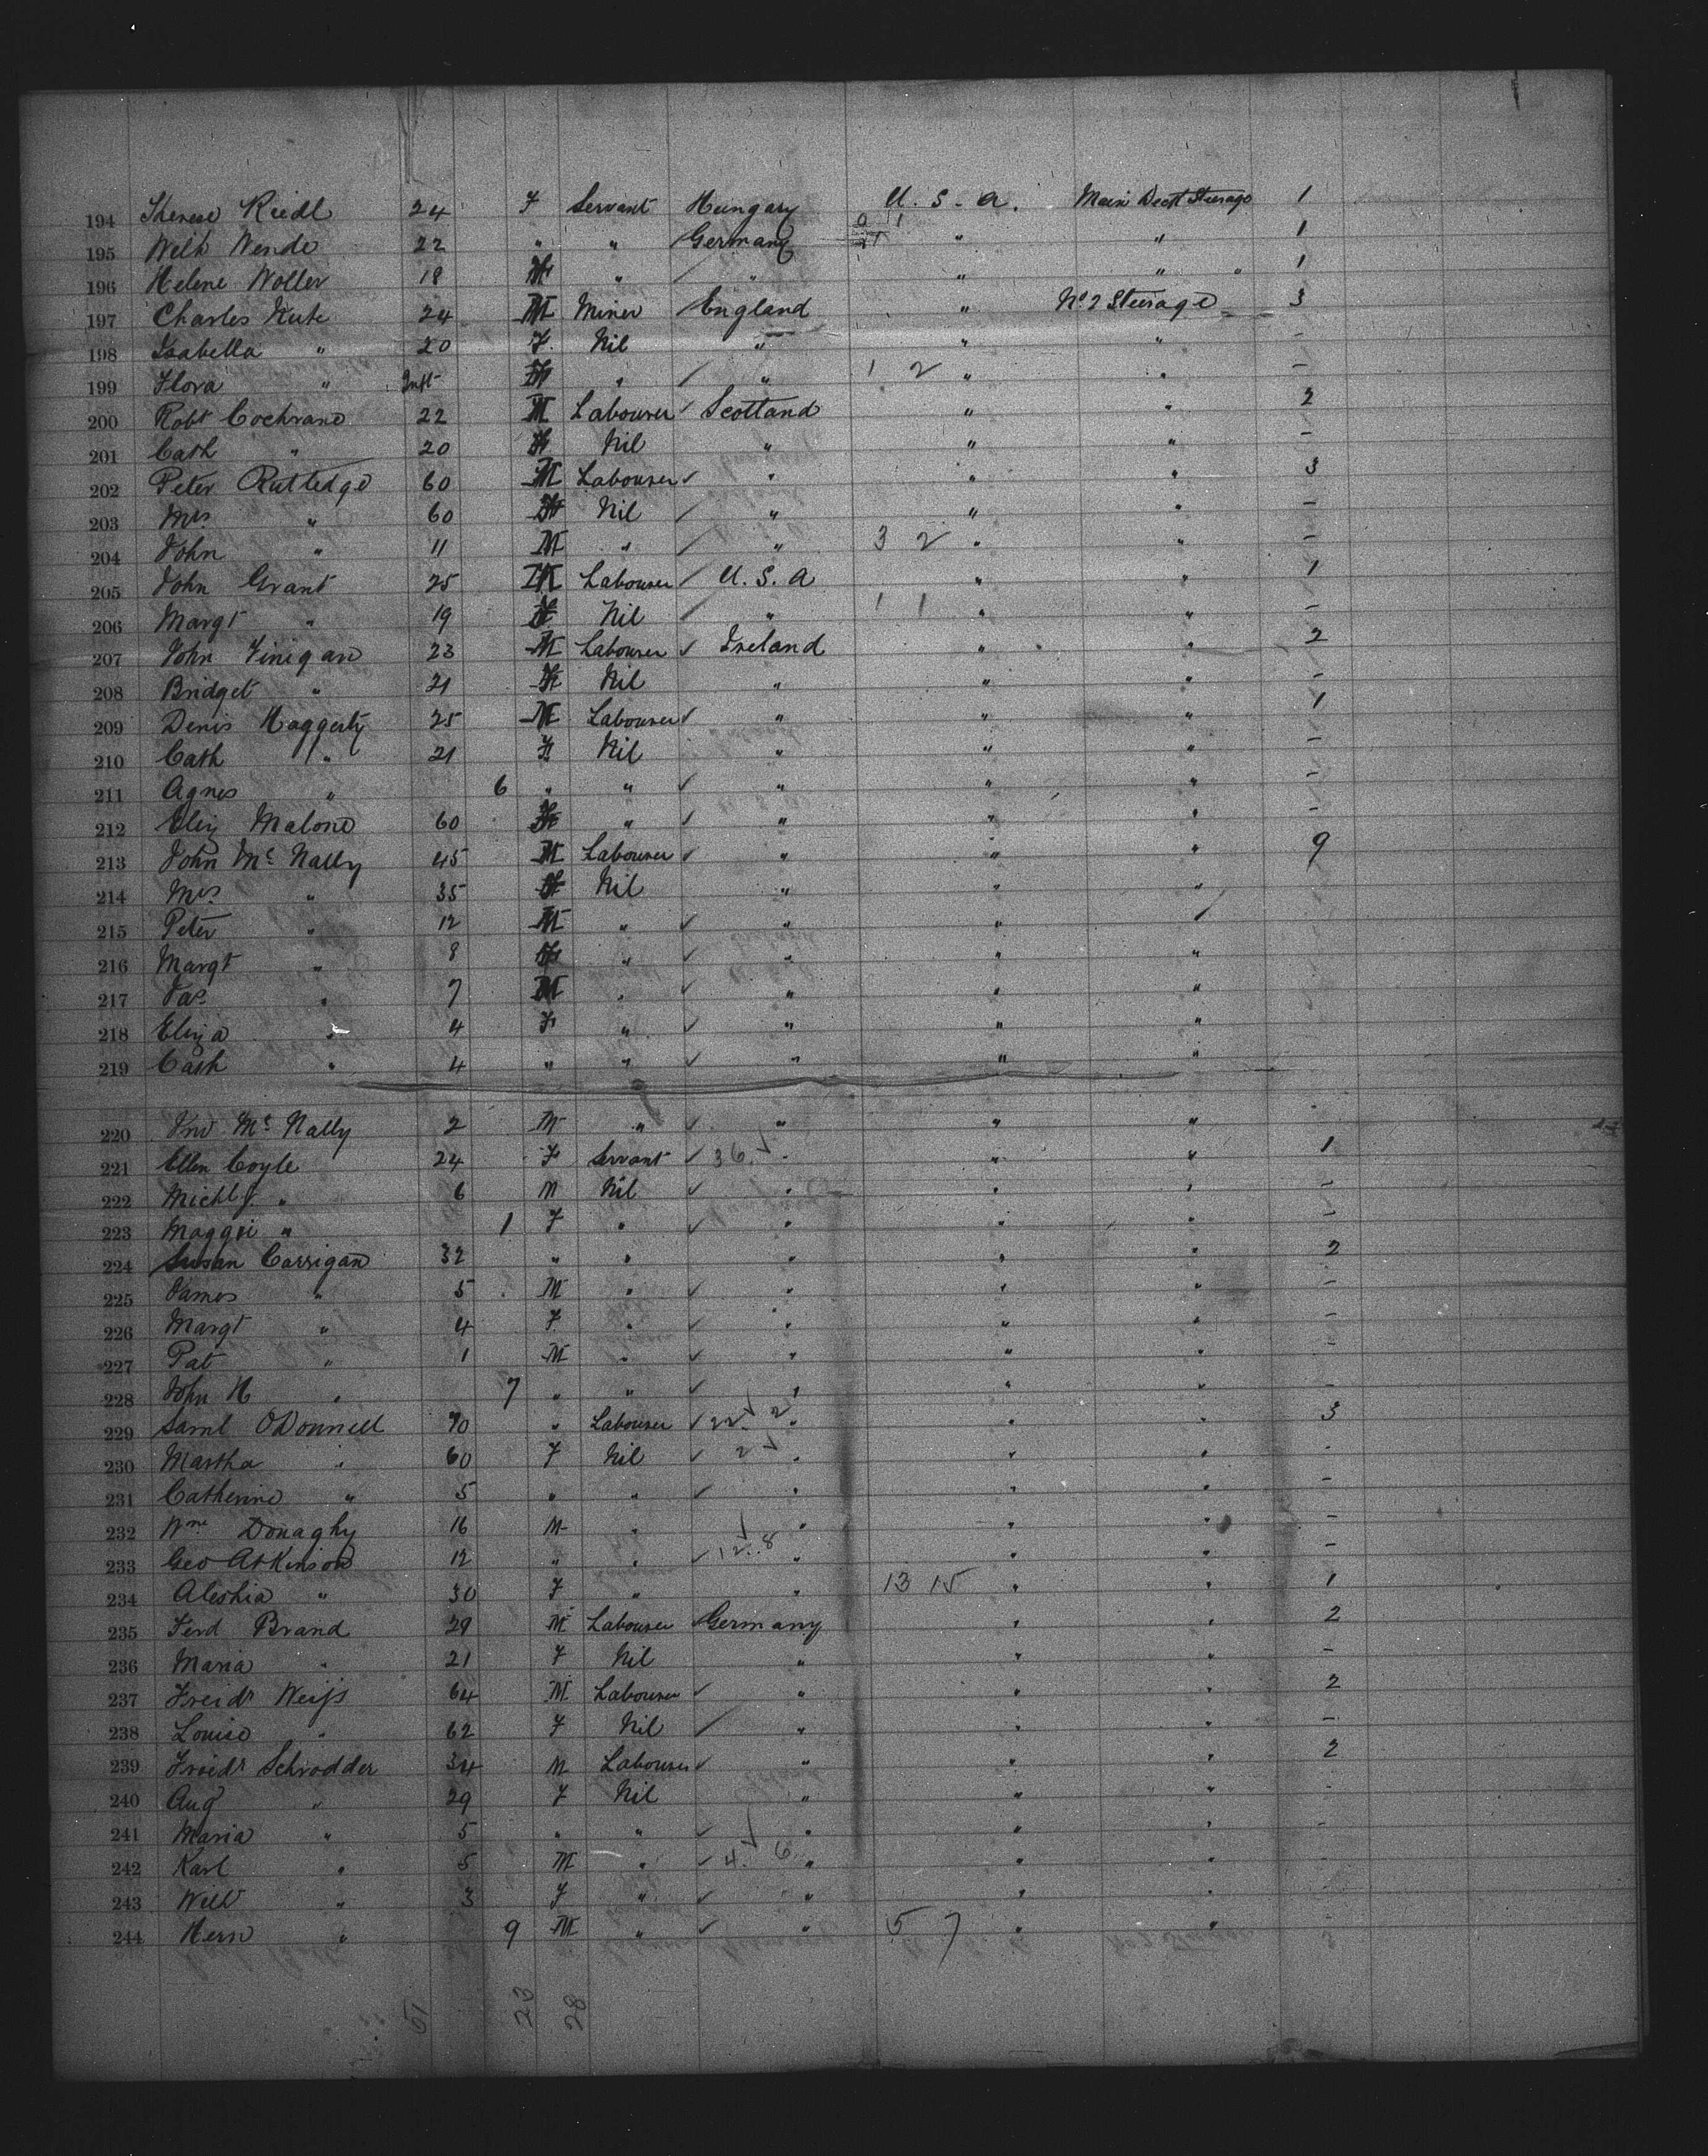 194 Therese Riedl 24 F Servant Hungary U. S. A. Main Deck Steerage 1
195 Welh Wende 22 " " Germany " " 1
196 Helene Woller 18 F " " " " " 1
197 Charles Kute 24 M Miner England " No 2 Steerage 3
198 Isabella " 20 F. Nil " " " -
199 Flora " Inft F " " 1 2 " " -
200 Robt Cochrane 22 M Labourer Scotland " " 2
201 Cath " 20 F Nil " " " -
202 Peter Rutledge 60 M Labourer " " " 3
203 Mrs " 60 F Nil " " " -
204 John " 11 M " " 3 2 " " -
205 John Grant 25 M Labourer U. S. A " " 1
206 Margt " 19 F Nil " 1 1 " " -
207 John Finigan 23 M Labourer Ireland " " 2
208 Bridget " 21 F Nil " " " -
209 Denis Haggerty 25 M Labourer " " " 1
210 Cath " 21 F Nil " " " -
211 Agnes " 6 " " " " " -
212 Eliz Malone 60 F " " " " -
213 John Mc Nally 45 M Labourer " " " 9
214 Mrs " 35 F Nil " " "
215 Peter " 12 M " " "
216 Margt " 8 F " " " "
217 Jas " 7 M " " " "
218 Eliza " 4 F " " " "
219 Cath " 4 " " " " "
220 Jno Mc Nally 2 M " " " "
221 Ellen Coyle 24 F Servant 36 " " " 1
222 Michl J. " 6 M Nil " " " -
223 Maggie " 1 F " " " " -
224 Susan Carrigan 32 " " " " " 2
225 James " 5 M " " " " -
226 Margt " 4 F " " " " -
227 Pat " 1 M " " " " -
228 John H " 7 " " " " " -
229 Saml ODonnell 70 " Labourer 22 2 " " " 3
230 Martha " 60 F Nil 2 " " " -
231 Catherine " 5 " " " " " -
232 Wm Donaghy 16 M " " " " -
233 Geo Atkinson 12 " " 12 8 " " " -
234 Aleshia " 30 F " " 13 15 " " 1
235 Ferd Brand 29 M Labourer Germany " " 2
236 Maria " 21 F Nil " " " -
237 Freidr Weifs 64 M Labourer " " " 2
238 Louise " 62 F Nil " " " -
239 Freidr Schrodder 34 M Labourer " " " 2
240 Aug " 29 F Nil " " " -
241 Maria " 5 " " " " " -
242 Karl " 5 M " 4 6 " " " -
243 Will " 3 F " " " " -
244 Herm " 9 M " " 5 7 " " -
51 23 28